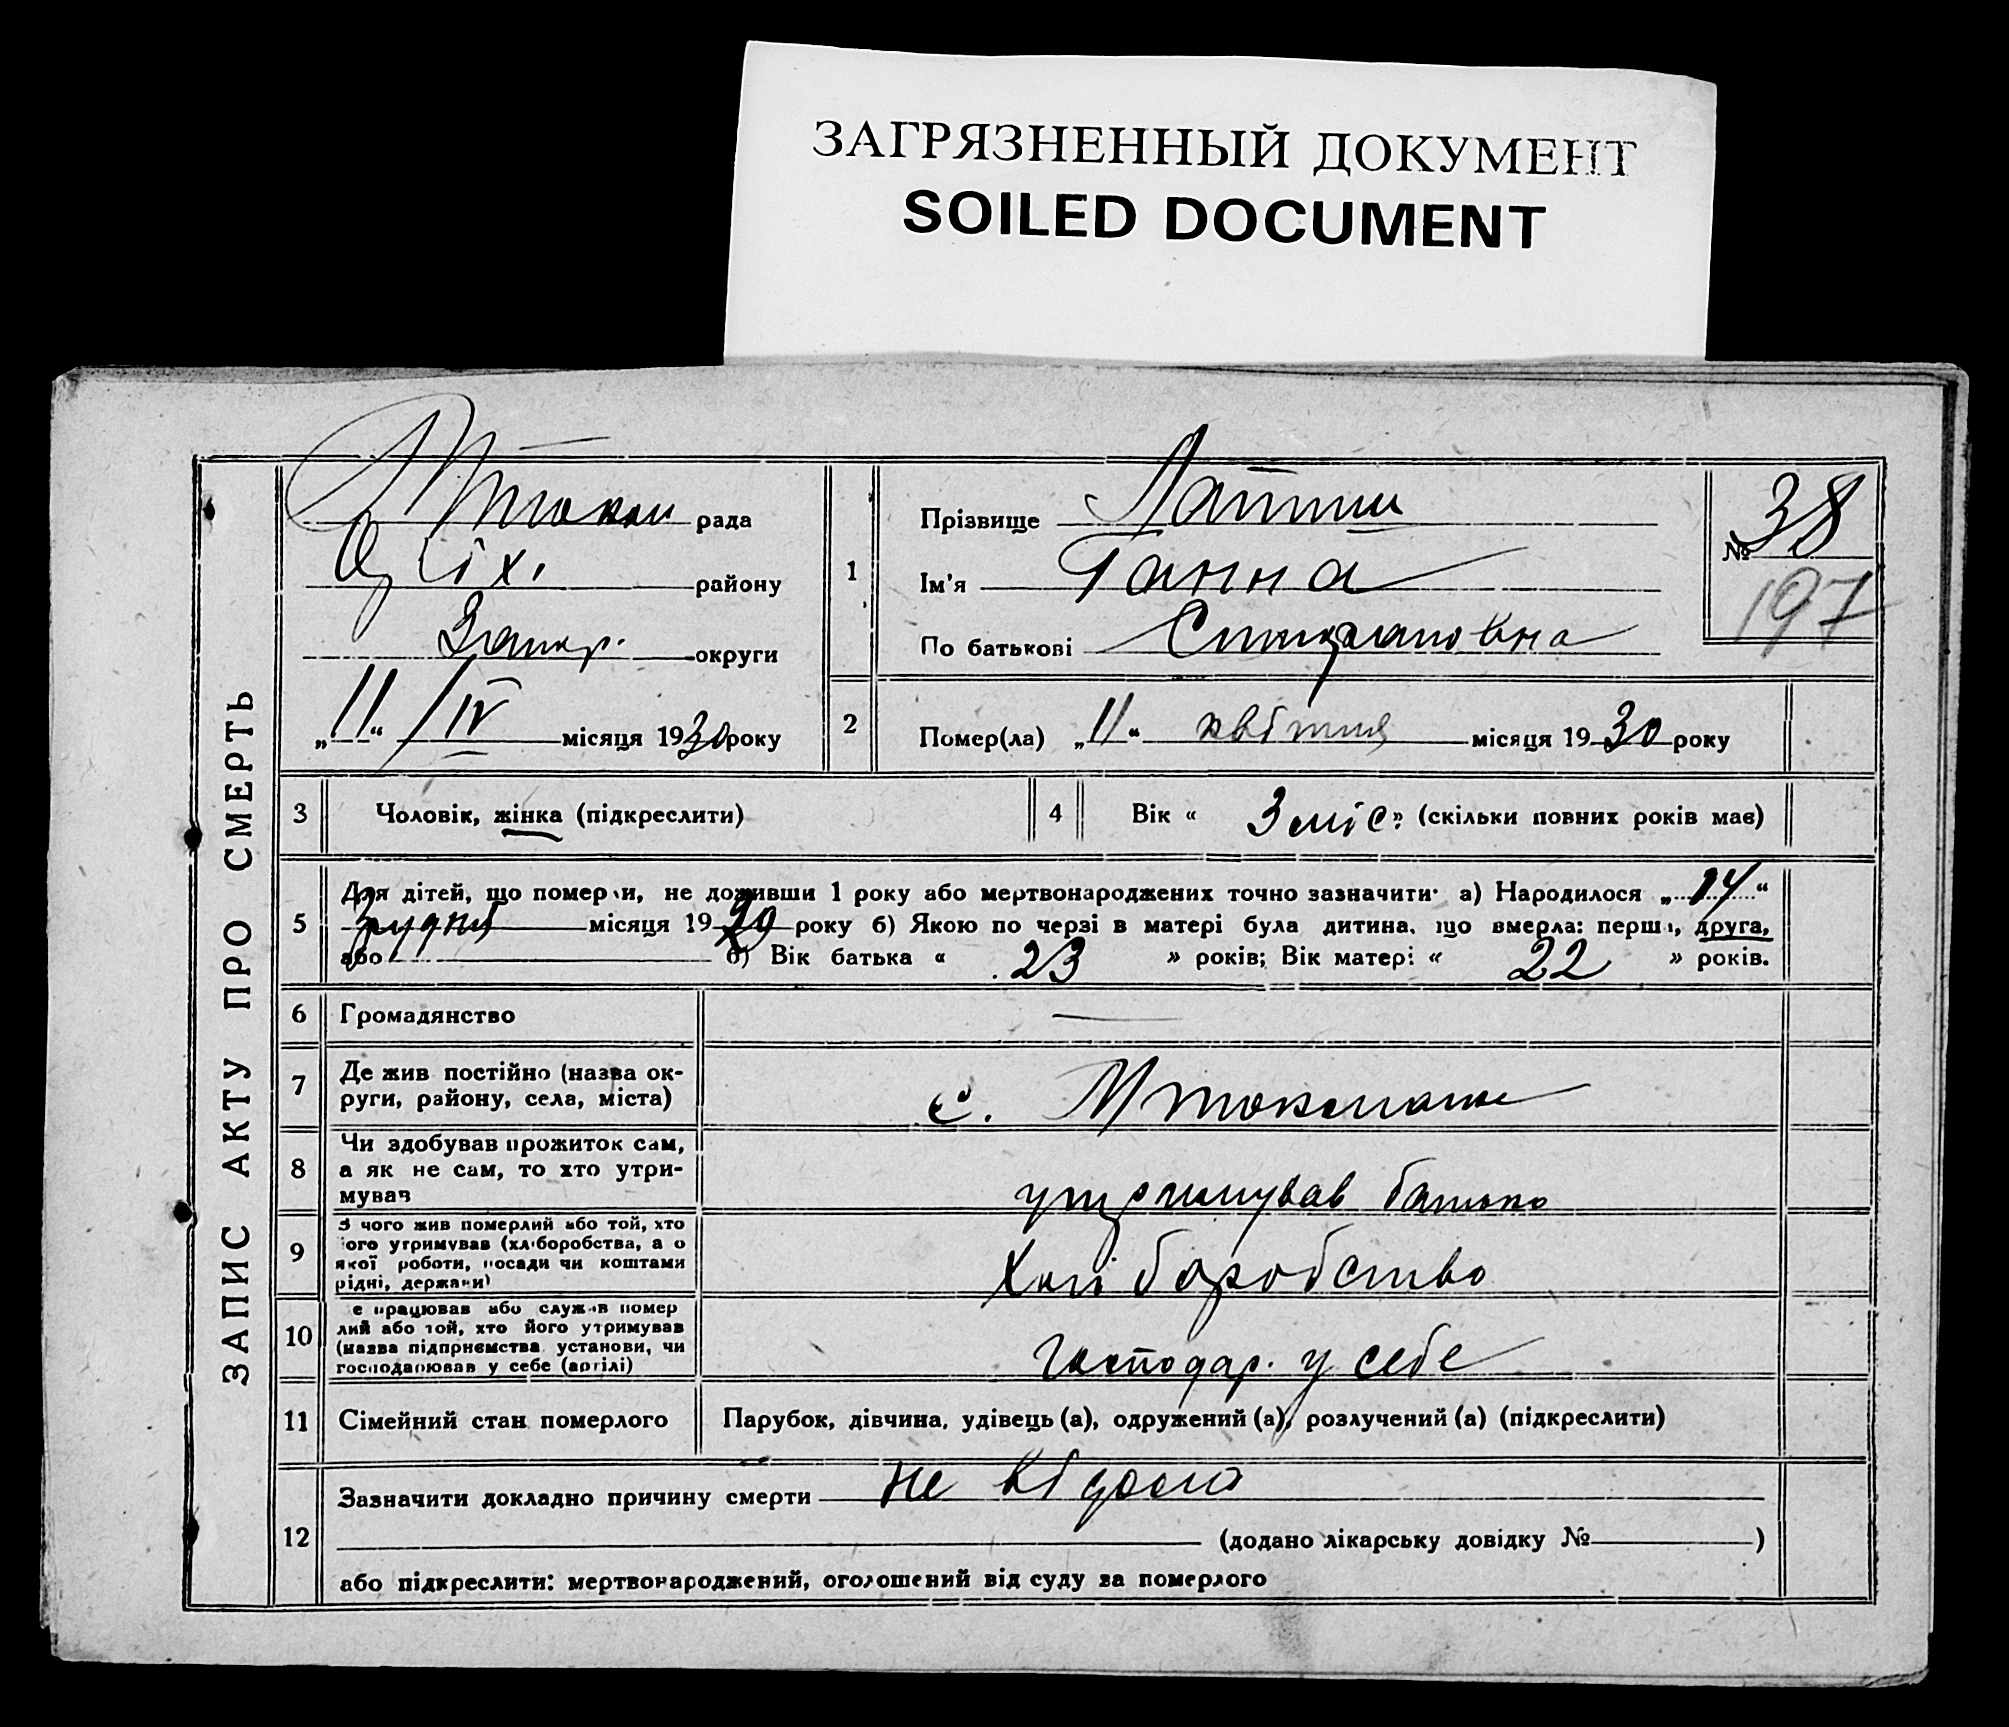 ЗАГРЯЗНЕННЫЙ ДОКУМЕНТ
SOILED DOCUMENT
ЗАПИС АКТУ ПРО СМЕРТЬ
рада
району
Запор. округи
„11“ /IV місяця 1930 року
1
Прізвище
Ім'я Ганна
По батькові
№ 38
197
2
Помер(ла) „11“ квітня місяця 1930 року
3 Чоловік, жінка (підкреслити)
4 Вік « 3 міс » (скільки повних років має)
5 Для дітей, що померли, не доживши 1 року або мертвонароджених точно зазначити: а) Народилося „14“
Грудня місяця 19 року б) Якою по черзі в матері була дитина, що вмерла: перша, друга,
або в) Вік батька « 23 » років; Вік матері « 22 » років.
6 Громадянство —
7 Де жив постійно (назва ок-
руги, району, села, міста)
с. Мтокмачка
8 Чи здобував прожиток сам,
а як не сам, то хто утри-
мував
утримував батько
9 З чого жив померлий або той, хто
його утримував (хліборобства, а о
якої роботи, посади чи коштами
рідні, держави)
Хліборобство
10 Де працював або служив помер
лий або той, хто його утримував
(назва підприємства, установи, чи
господарював у себе (артілі)
Господар. у себе
11 Сімейний стан померлого
Парубок, дівчина, удівець (а), одружений (а), розлучений (а) (підкреслити)
12 Зазначити докладно причину смерти не відомо
(додано лікарську довідку № )
або підкреслити: мертвонароджений, оголошений від суду за померлого